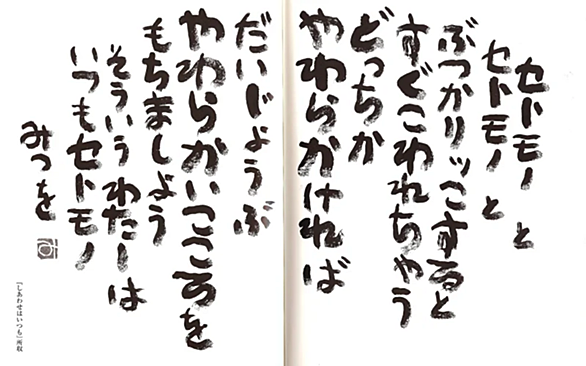 セトモノと
セトモノと
ぶつかりッこすると
すぐこわれちゃう
どっちか
やわらかければ
だいじょうぶ
やわらかいこころを
もちましょう
そういうわたしは
いつもセトモノ
みつを
『しあわせはいつも』所収